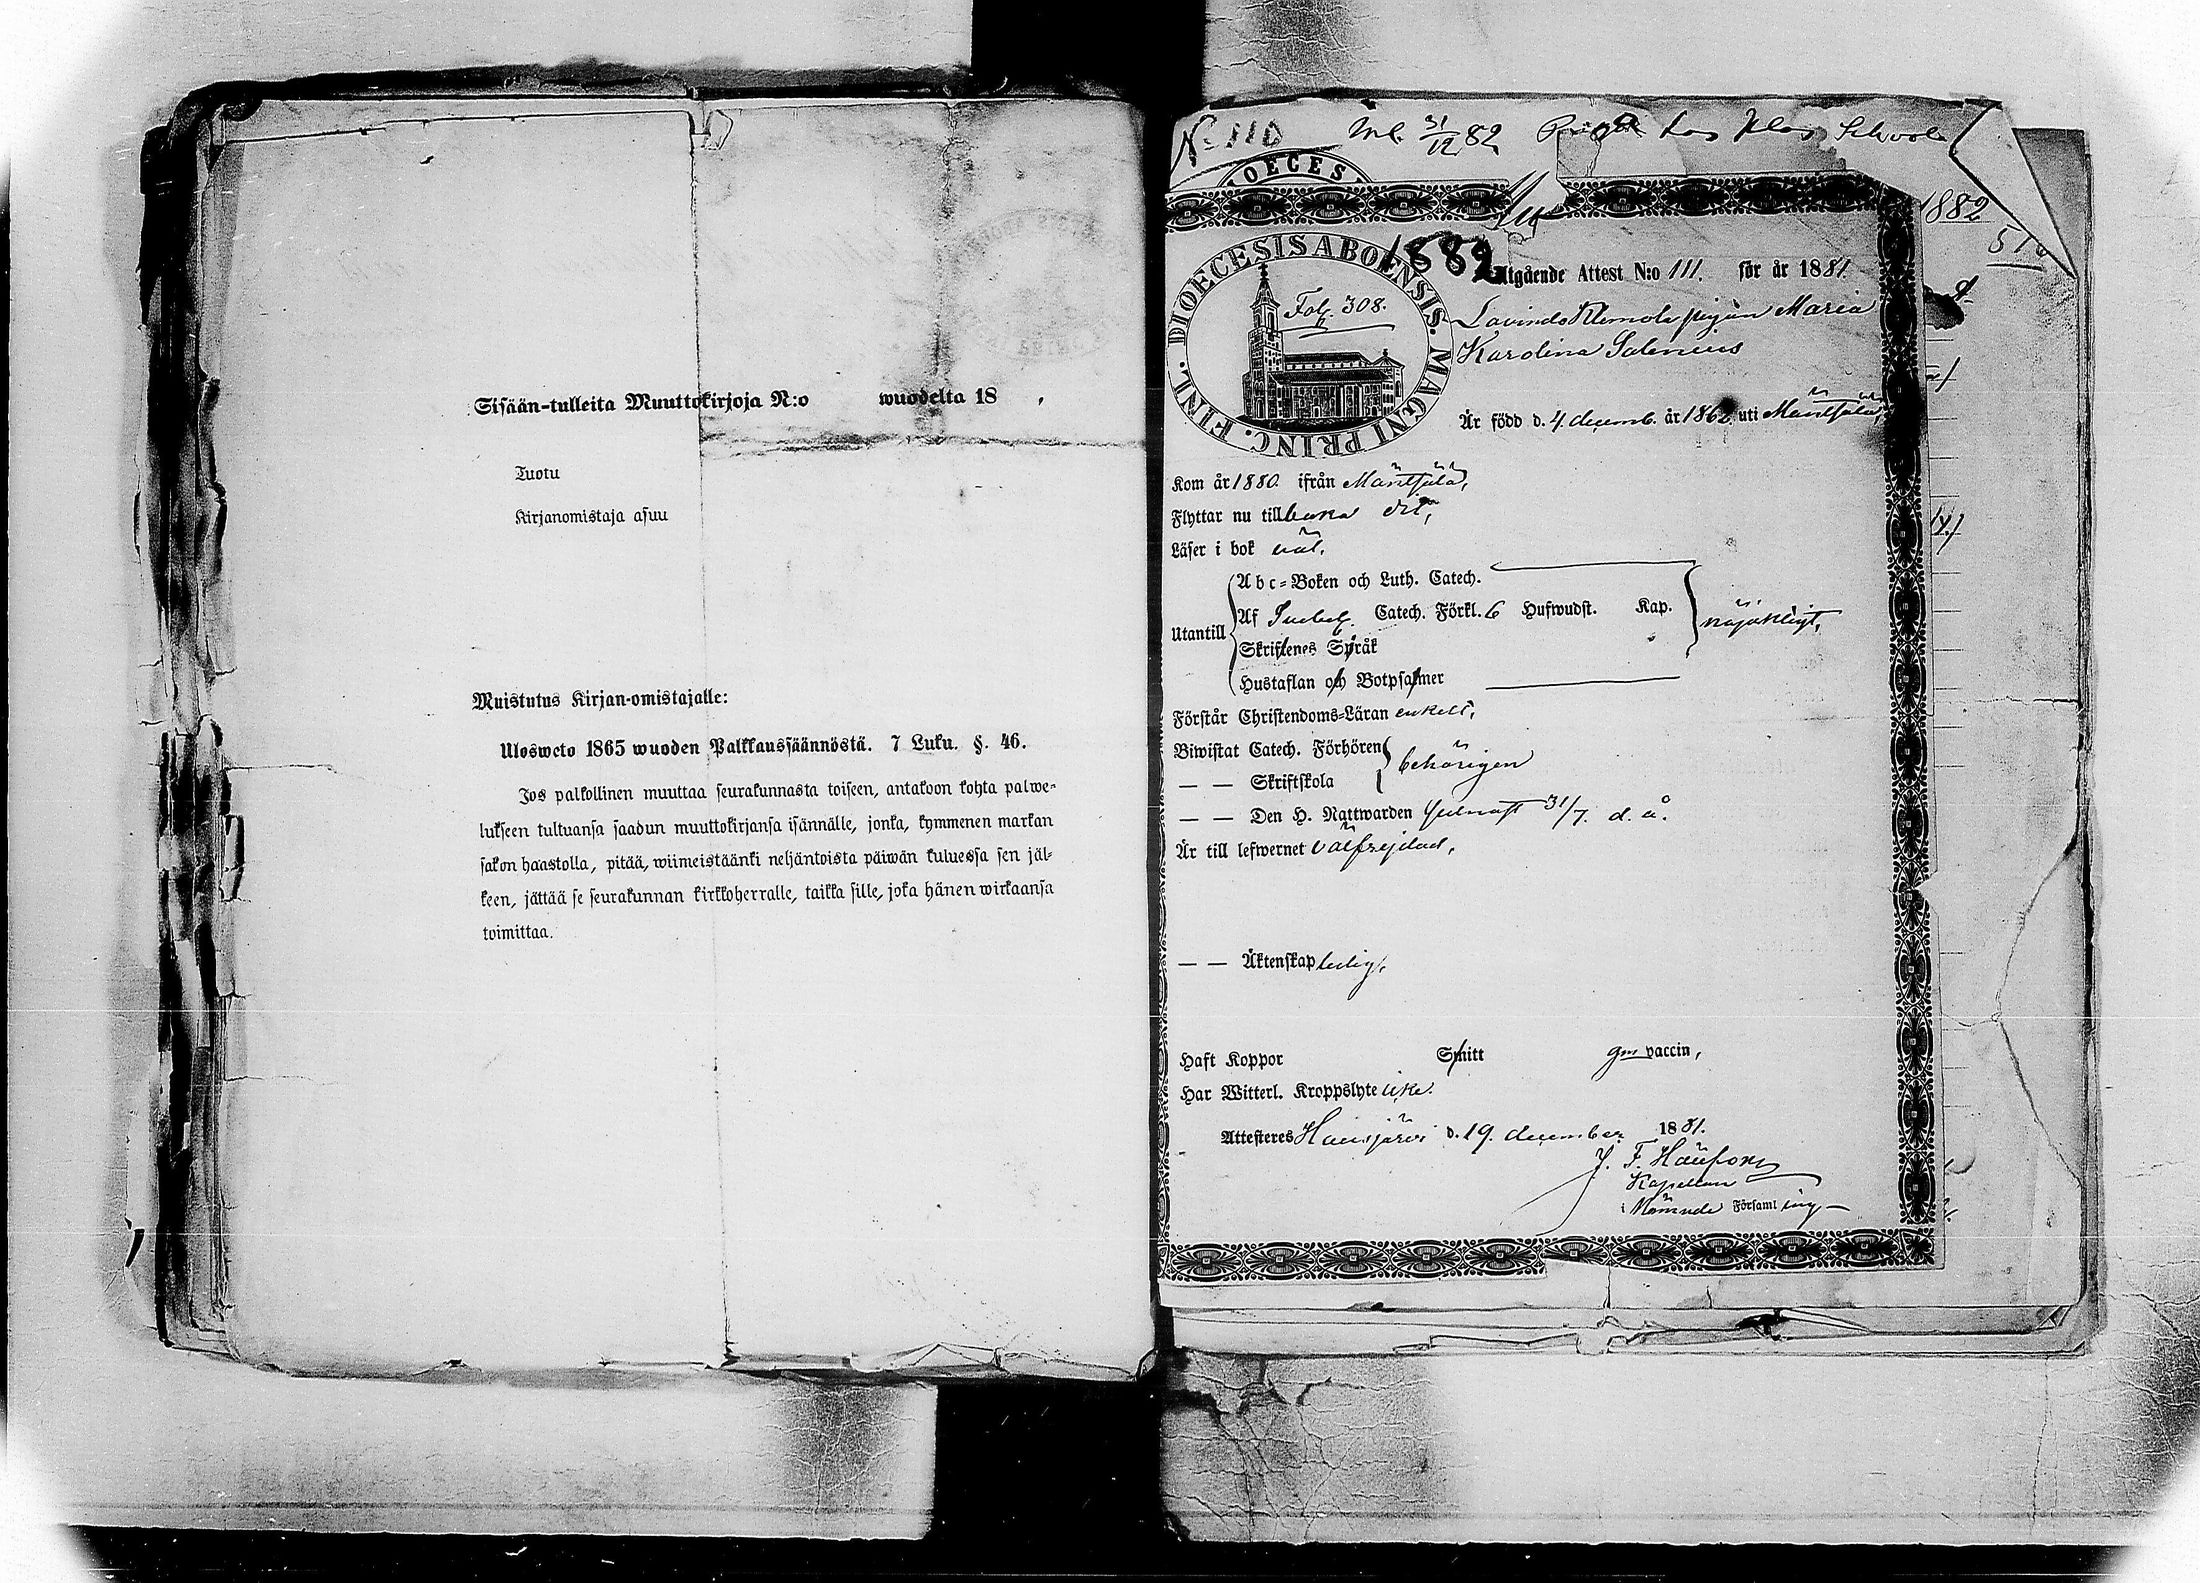 Sisään-tulleita Muuttokirjoja N:o wuodelta 18 ,
Tuotu
Kirjanomistaja asuu
Muistutus Kirjan-omistajalle:
Uloswето 1865 wuoden Palkkaussäännöstä. 7 Luku. §. 46.
Jos palkollinen muuttaa seurakunnasta toiseen, antakoon kohta palwe-
lukseen tultuansa saadun muuttokirjansa isännälle, jonka, kymmenen markan
sakon haastolla, pitää, wiimeistäänki neljäntoista päiwän kuluessa sen jäl-
keen, jättää se seurakunnan kirkkoherralle, taikka sille, joka hänen wirkaansa
toimittaa.
No 110 31/12 82
DIOECES
1882
51
1882
DIOECESIS ABOENSIS. MAGNI PRINC. FINL.
Fol. 308.
Utgående Attest N:o 111. för år 1881.
Maria
Karolina Salenius
Är född d. 4 decemb. år 1862 uti Mäntsälä,
Kom år 1880. ifrån Mäntsälä,
Flyttar nu tillbaka dit,
Läser i bok väl.
Utantill
Abc-Boken och Luth. Catech.
Af Catech. Förkl. 6 Hufwudst. Kap.
nöjaktigt,
Skriftenes Språk
Hustaflan och Botpsalmer
Förstår Christendoms-Läran enkelt,
Biwistat Catech. Förhören
behörigen
— — Skriftskola
— — Den H. Nattwarden senast 31/7. d. å.
Är till lefwernet välfrejdad,
— — Äktenskap ledig,
Haft Koppor Smitt gm vaccin,
Har Witterl. Kroppslyte icke.
Attesteres Hausjärvi d. 19. december 1881.
J. F.
Kapellan
i Nämnde Församling